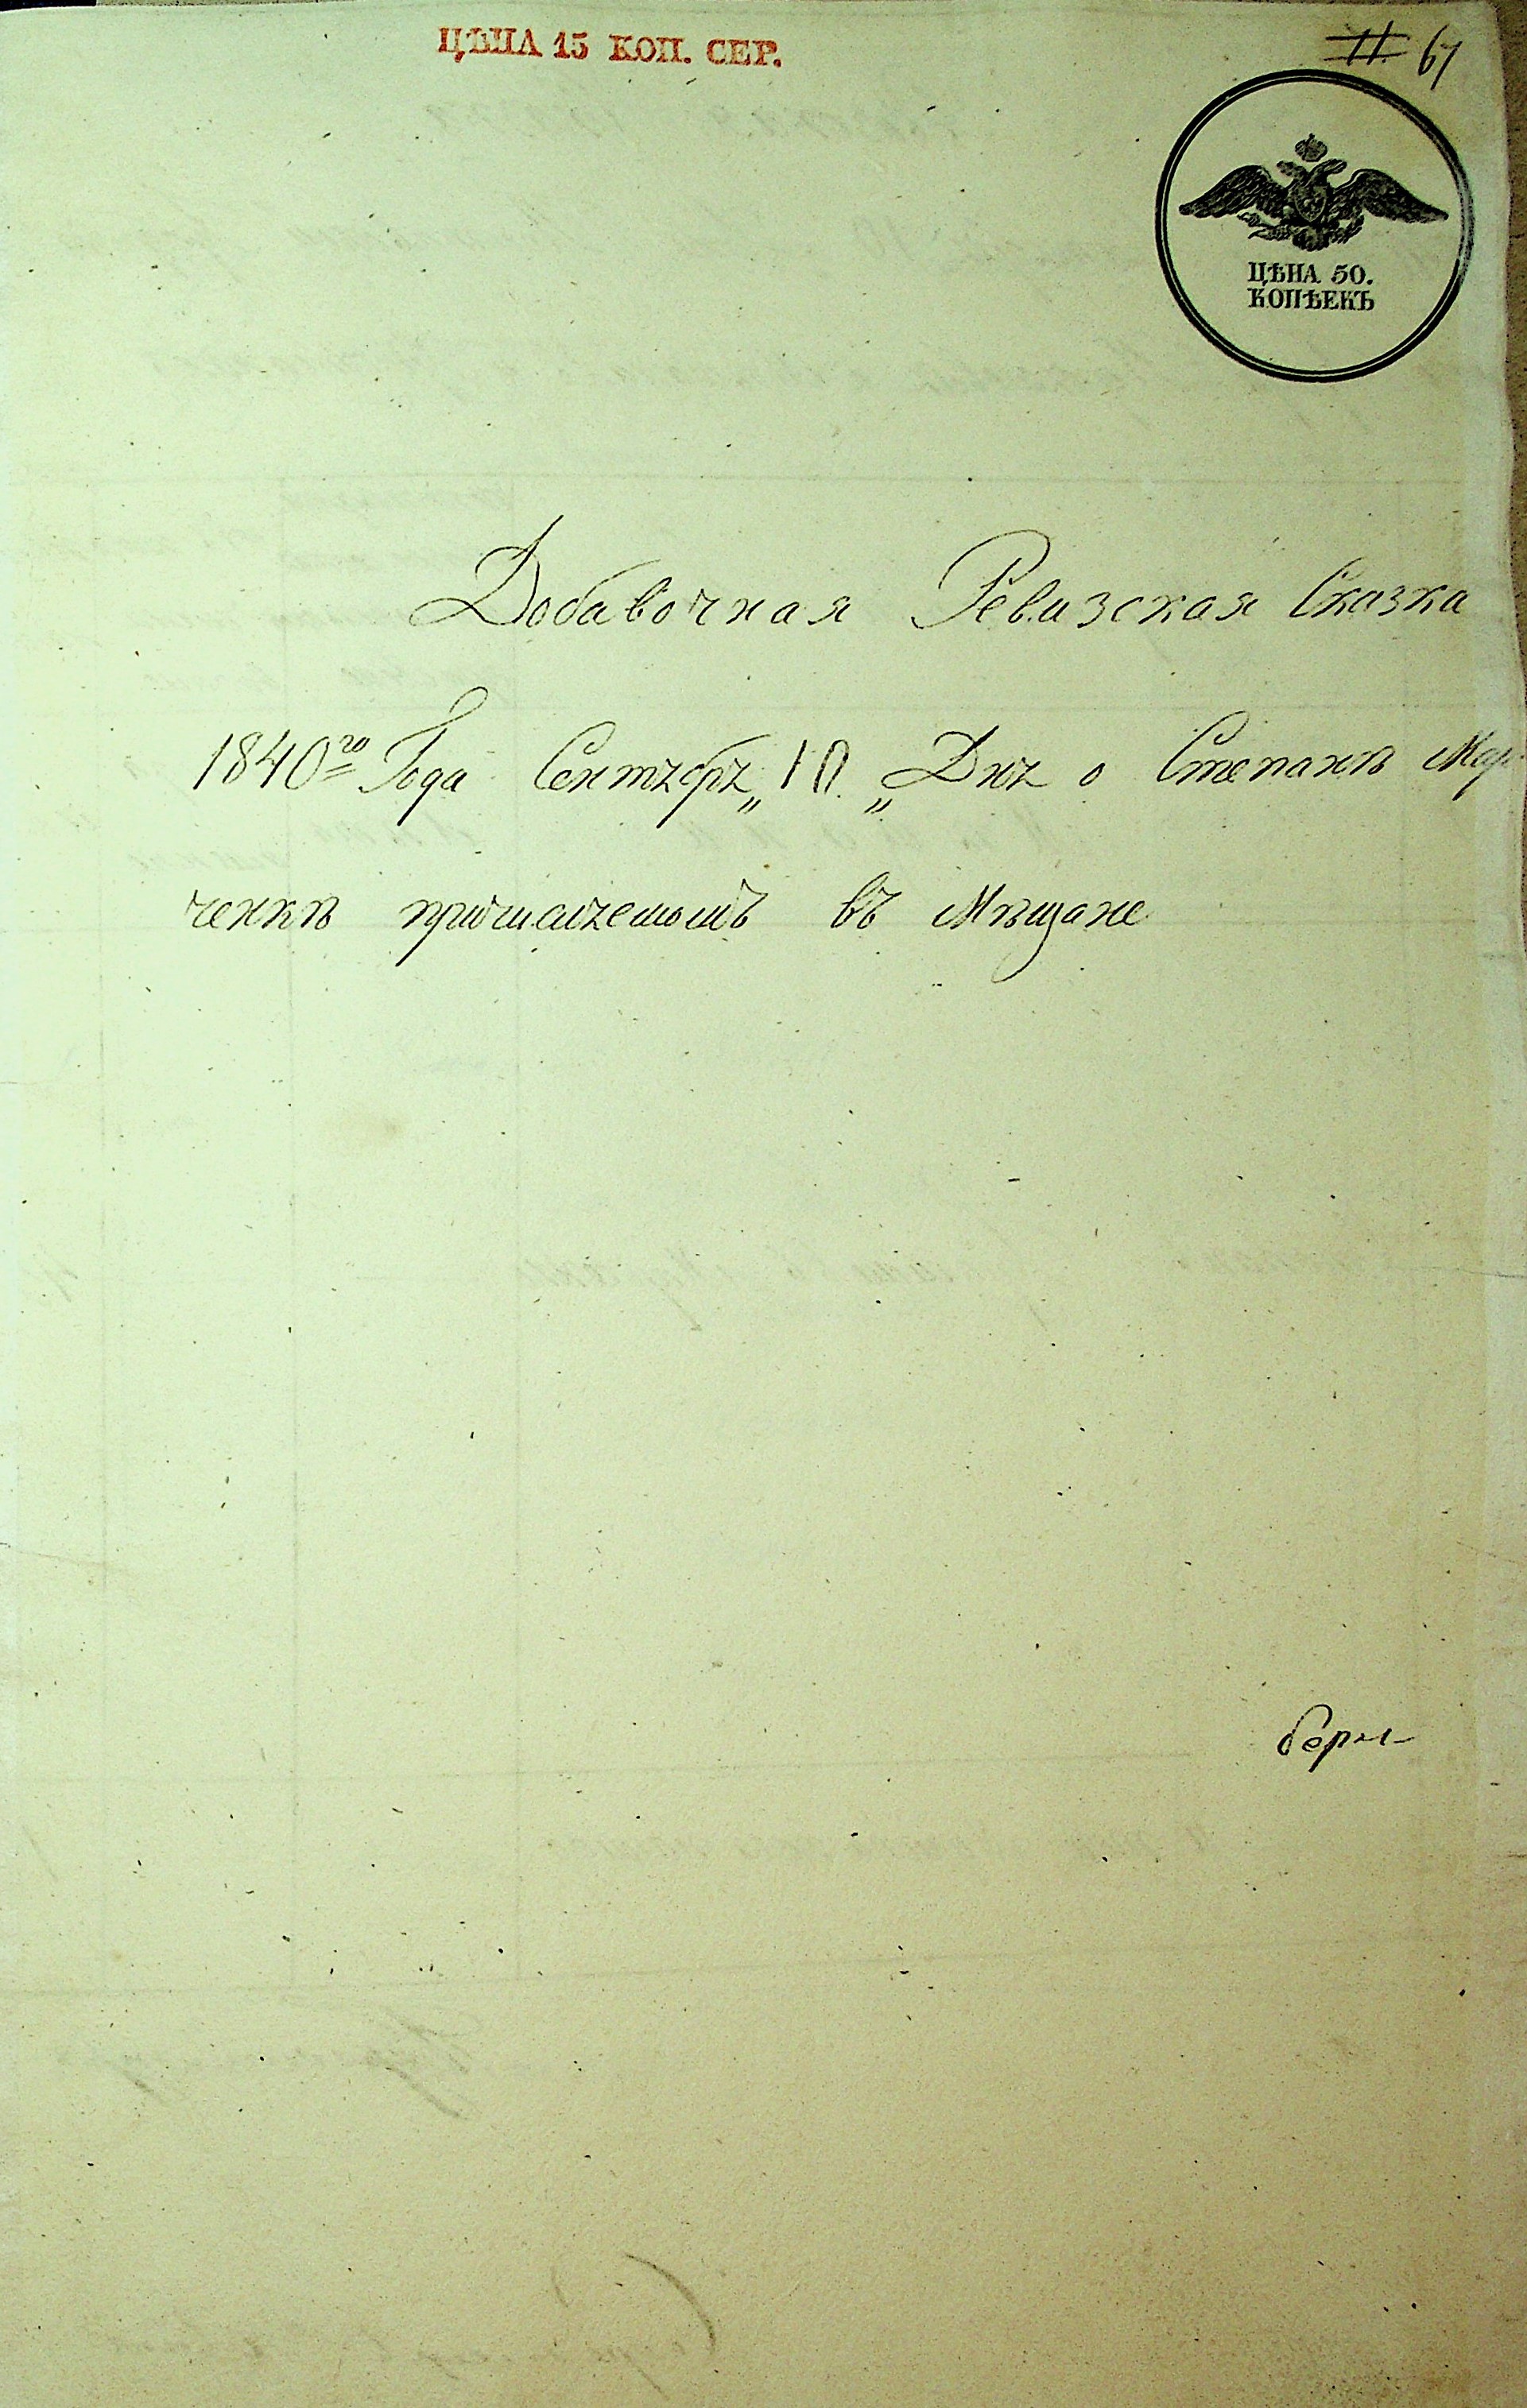 ЦѢНА 15 КОП. СЕР.
11. 61
ЦѢНА 50.
КОПѢЕКЪ
Добавочная Ревизская Сказка
1840го Года Сентября „10„ Дня о Степанѣ Мар
ченкѣ причисляемомъ въ Мѣщане